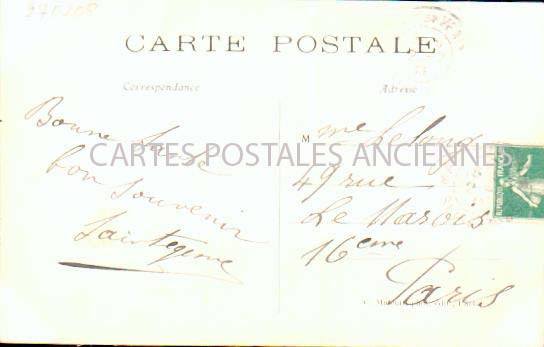 275208
CARTE POSTALE
Correspondance
Adresse
Bonne Santé
bon souvenir
M me Lelong
49 rue
Le Marois
16 eme
Paris
CARTES POSTALES ANCIENNES
REPUBLIQUE FRANÇAISE